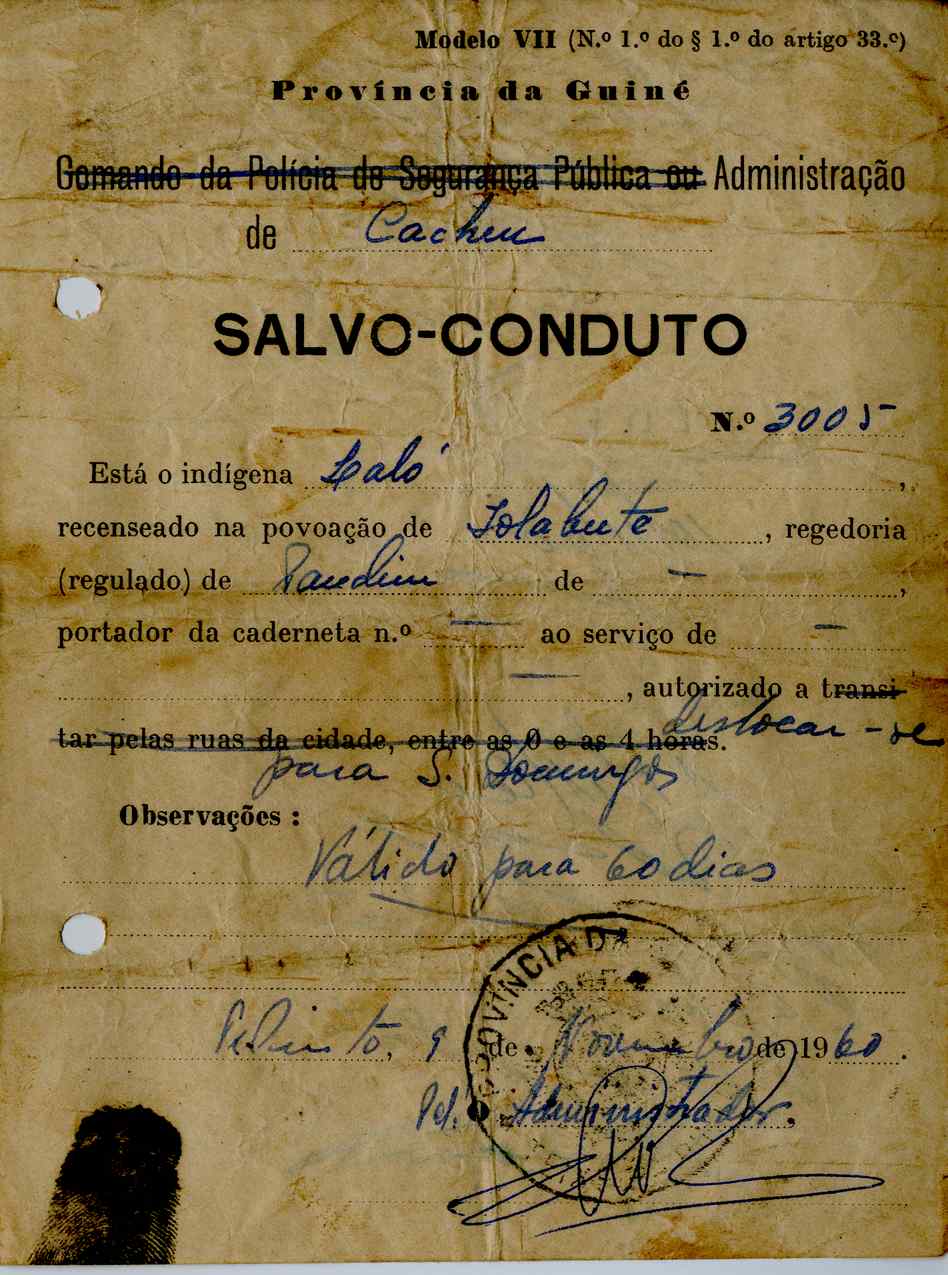 Modelo VII (N.º 1.º do § 1.º do artigo 33.º)
Província da Guiné
Comando da Polícia de Segurança Pública ou Administração
de Cacheu
SALVO-CONDUTO
N.º 3005
Está o indígena Laló,
recenseado na povoação de Iolabute, regedoria
(regulado) de Pandim de —,
portador da caderneta n.º — ao serviço de —
—, autorizado a transi
tar pelas ruas da cidade, entre as 0 e as 4 horas. deslocar-se
para S. Domingos
Observações:
Válido para 60 dias
PROVÍNCIA DA
9 de Novembro de 1960.
Administrador,